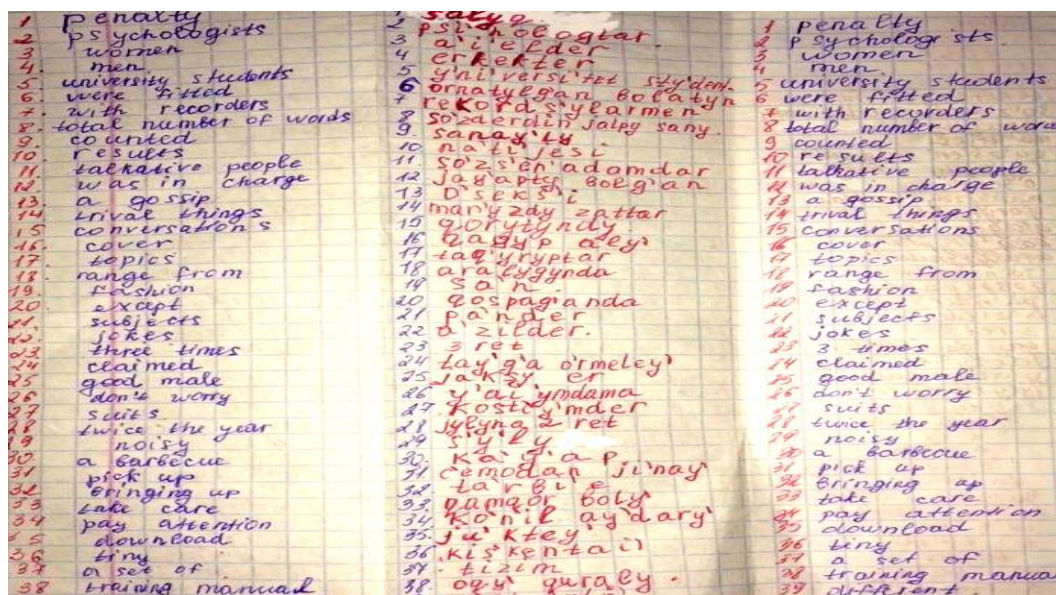 1 penalty
2 psychologists
3 women
4. men
5 university students
6. were fitted
7. with recorders
8. total number of words
9. counted
10. results
11 talkative people
12. was in charge
13. a gossip
14 trival things
15 conversations
16. cover
17. topics
18. range from
19. fashion
20. except
21. subjects
22. jokes
23 three times
24 claimed
25 good male
26 don't worry
27 suits
28 twice the year
29 noisy
30 a barbecue
31 pick up
32 bringing up
33 take care
34 pay attention
35 download
36 tiny
37 a set of
38 training manual
1. salyq.
2 psihologtar.
3 a'ielder
4 erkekter
5 y'niversitet stydent.
6 ornatylgan bolatyn
7 rekordsiylarmen
8 so'zderdin jalpy sany.
9. sanay'ly
10 na'tijesi
11. so'zs'en adamdar
12 jayapty bolg'an
13 O'sekshi
14 man'yzdy zattar
15 qorytyndy
16 qagyp aly'
17 taq'yryptar
18 aralygynda
19 san.
20. qospaganda
21 pander
22 a'zilder.
23 3 ret
24 tay'g'a o'rmeley'
25 jaksy er
26 y'aiymdama
27. kosti'y'mder
28 jylyna 2 ret
29 s'y'ly
30. ka'y'ap
31 cemodan ji'nay'
32 tarbi'e
33. qamqor boly'
34. ko'nil ay'dary'
35. ju'ktey
36 kis'kentai
37. tizim
38. oqy' quraly.
1 penalty
2 psychologists
3 women
4 men
5 university students
6 were fitted
7 with recorders
8 total number of
9 counted
10 results
11 talkative people
12 was in charge
13 a gossip
14 trival things
15 conversations
16 cover
17 topics
18 range from
19 fashion
20 except
21 subjects
22 jokes
23 3 times
24 claimed
25 good male
26 don't worry
27 suits
28 twice the year
29 noisy
30 a barbecue
31 pick up
32 bringing up
33 take care
34 pay attention
35 download
36 tiny
37 a set of
38 training manual
39 different